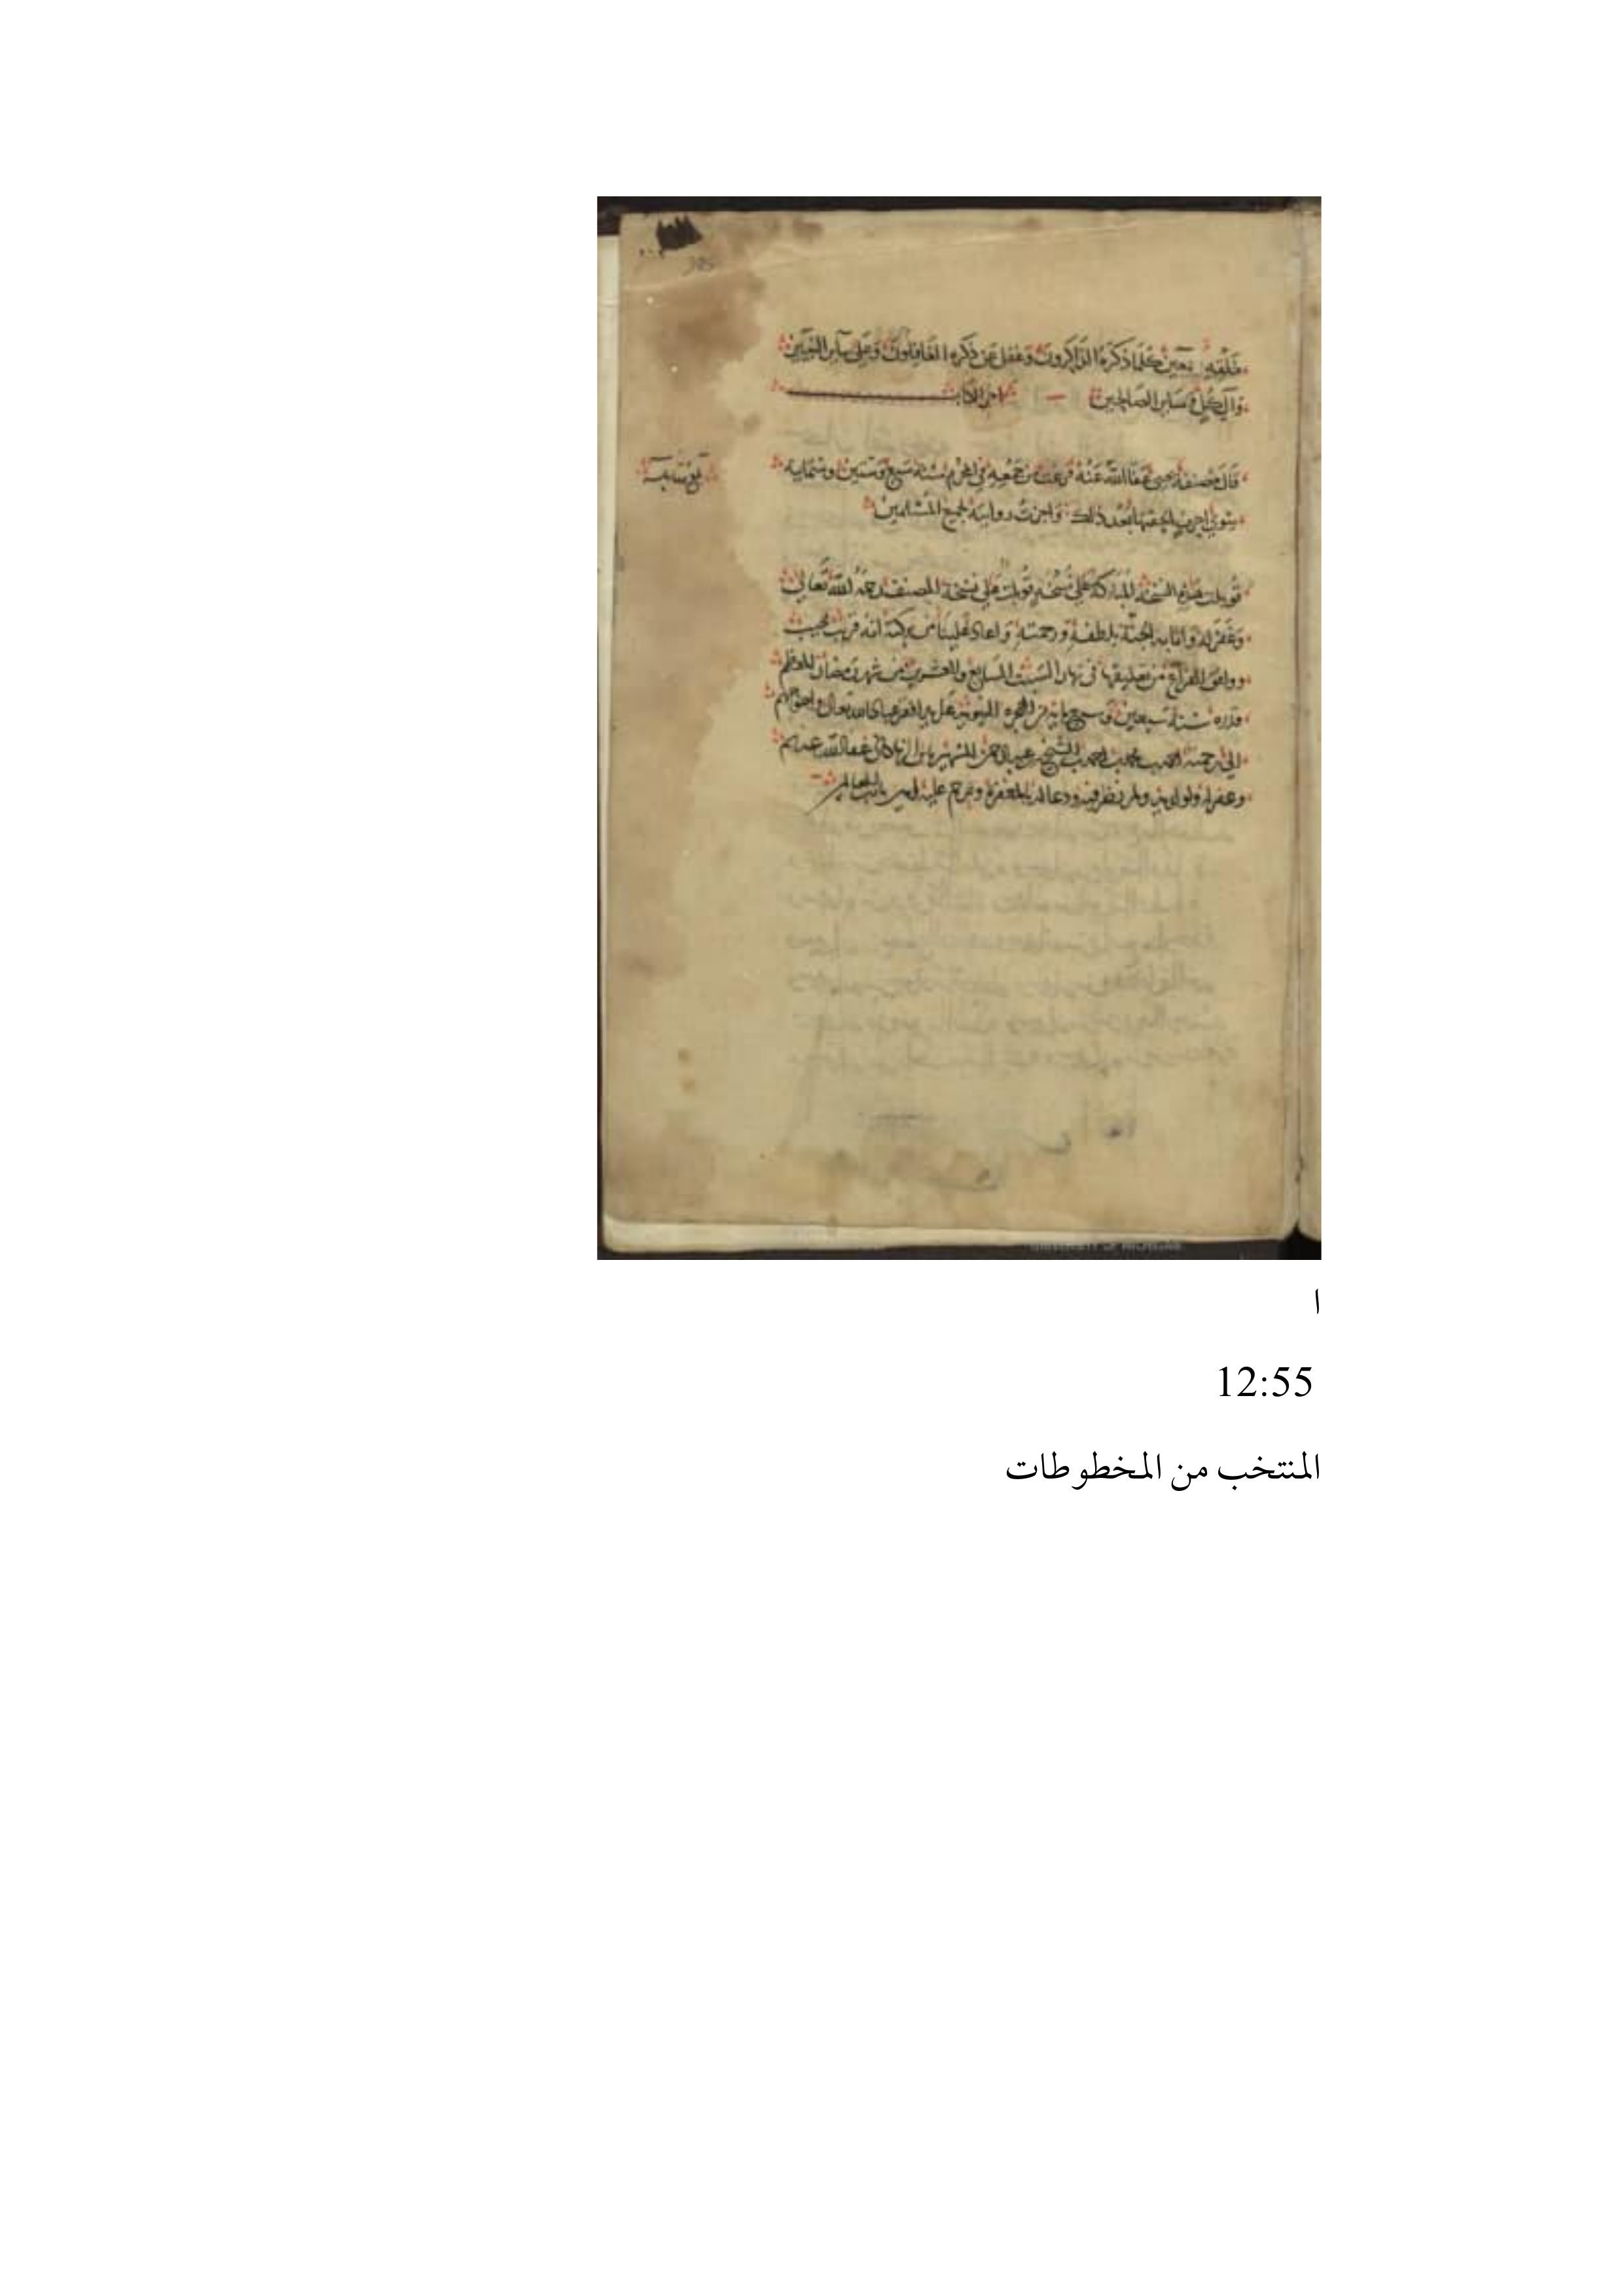 خلقه أجمعين كلما ذكره الذاكرون وغفل عن ذكره الغافلون وعلى سائر النبيين
وآل كل وسائر الصالحين آخر الكتاب
قال مصنفه يحيى عفا الله عنه فرغت من جمعه في المحرم سنة سبع وستين وستماية
سوى احرف الحقتها بعد ذلك واجزت روايته لجميع المسلمين
قوبلت هذه النسخة المباركة على نسخة قوبلت على نسخة المصنف رحمه الله تعالى
وغفر له واثابه الجنة بلطفه ورحمته واعاد علينا من بركته انه قريب مجيب
ووافق الفراغ من تعليقها في نهار السبت السابع والعشرين من شهر رمضان المعظم
قدره سنة سبعين وسبع ماية من الهجرة النبوية على يد افقر عباد الله تعالى واحوجهم
الى رحمته احمد بن محمد بن احمد بن الشيخ عبد الرحمن الشهير بابن عفا الله عنهم
وغفر له ولوالديه ولمن نظر فيه ودعا له بالمغفرة وترحم عليه امين يا رب العالمين
بلغ مقابلة
ا
12:55
المنتخب من المخطوطات